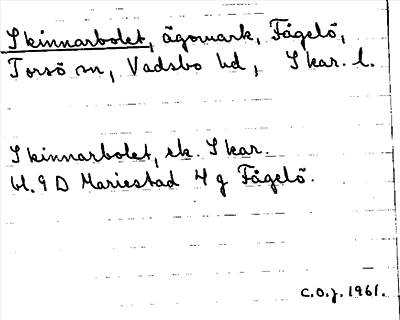 Skinnarbolet, ägomark, Fågelö,
Torsö sn, Vadsbo hd, Skar. l.
Skinnarbolet, ek. Skar.
bl. 9 D Mariestad 4 g Fågelö.
C.O.J. 1961.